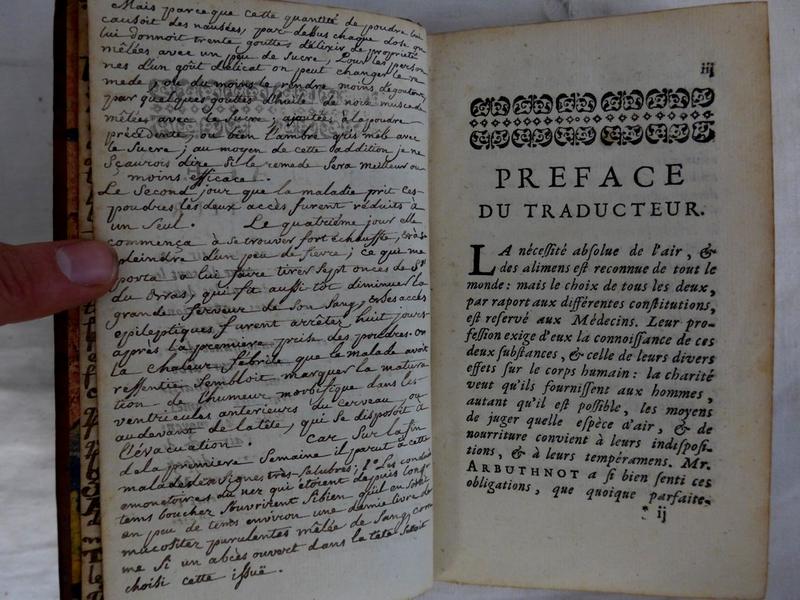 Mais parceque cette quantité de poudre lui
causoit des nausées, par dessus chaque dose on
lui donnoit trente gouttes d'élixir de proprieté
mêlées avec un peu de sucre, Pour les person
nes d'un goût délicat on peut changer le re
mede, ou du moins le rendre moins dégoutant
par quelques gouttes d'huile de noix muscade
mêlées avec le sucre; ajoutées à la poudre
précédente ou bien l'ambre gris mêlé avec
le sucre; au moyen de cette addition je ne
Sçaurois dire si le remede Sera meilleur ou
moins efficace.
Le Second jour que la maladie prit ces
poudres les deux accès furent réduits à
un Seul. Le quatrième jour elle
commença à se trouver fort échauffée, et à se
plaindre d'un peu de fievre; ce qui me
porta à lui faire tirer Sept onces de Sg
du bras, qui fit aussi tôt diminuer la
grande ferveur de Son Sang, et Ses accès
epileptiques furent arrêtés huit jours
après la première prise des poudres. or
la chaleur fébrile que le malade avoit
ressentie Sembloit marquer la matura
tion de l'humeur morbifique dans les
ventricules anterieurs du cerveau, ou
audevant de la tête, qui se disposoit à
l'évacuation. Car Sur la fin
de la premiere Semaine il parut à cette
malade des Signes très-salubres; 1° Les conduits
emonctoires du nez qui étoient depuis long
tems bouchez S'ouvrirent Si bien qu'il en Sortit
en peu de tems environ une demie livre de
mucosites purulentes mêlée de Sang, com
me Si un abcès ouvert dans la tête S'étoit
choisi cette issuë.
iij
PREFACE
DU TRADUCTEUR.
LA nécessité absolue de l'air, &
des alimens est reconnue de tout le
monde: mais le choix de tous les deux,
par raport aux différentes constitutions,
est reservé aux Médecins. Leur pro-
fession exige d'eux la connoissance de ces
deux substances, & celle de leurs divers
effets sur le corps humain: la charité
veut qu'ils fournissent aux hommes,
autant qu'il est possible, les moyens
de juger quelle espèce d'air, & de
nourriture convient à leurs indisposi-
tions, & à leurs tempéramens. Mr.
ARBUTHNOT a si bien senti ces
obligations, que quoique parfaite-
* ij